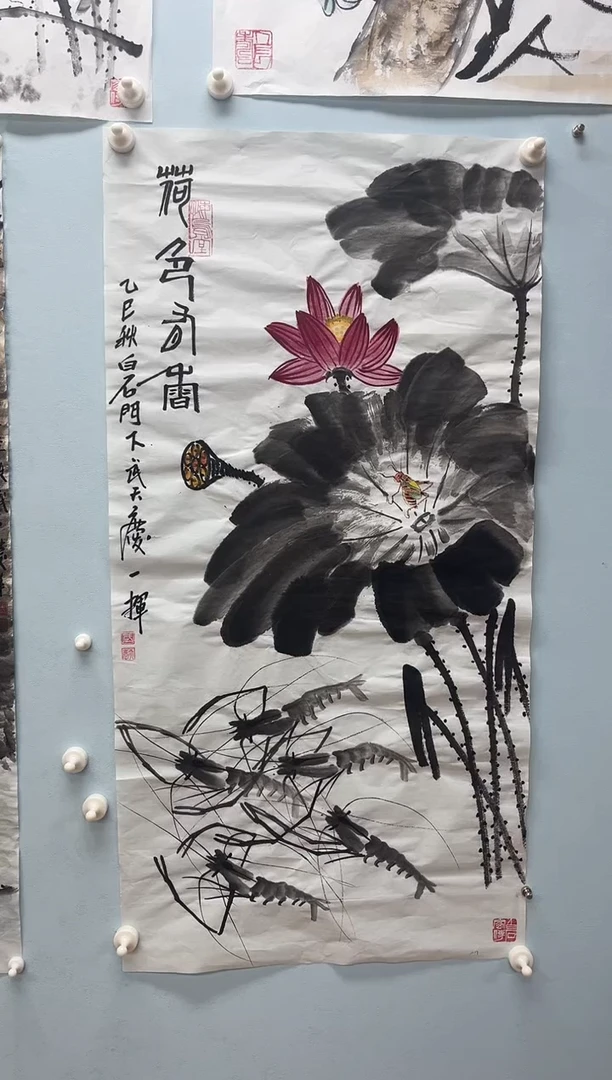 荷色香
乙巳秋白石門下武天慶一揮